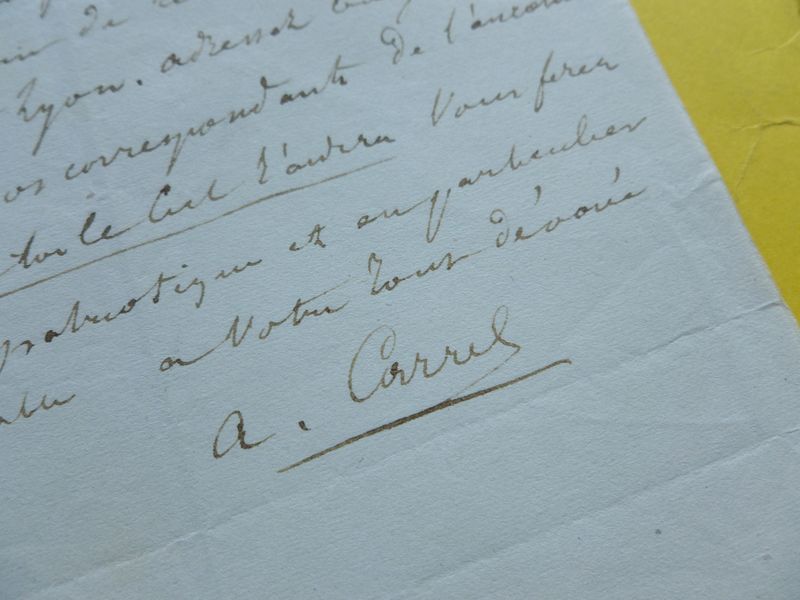 de
Lyon. adressez
os correspondants de l'ancien
toi le Ciel t'aidera Vous ferez
patriotique et en particulier
able a Votre tout dévoué
A. Carrel